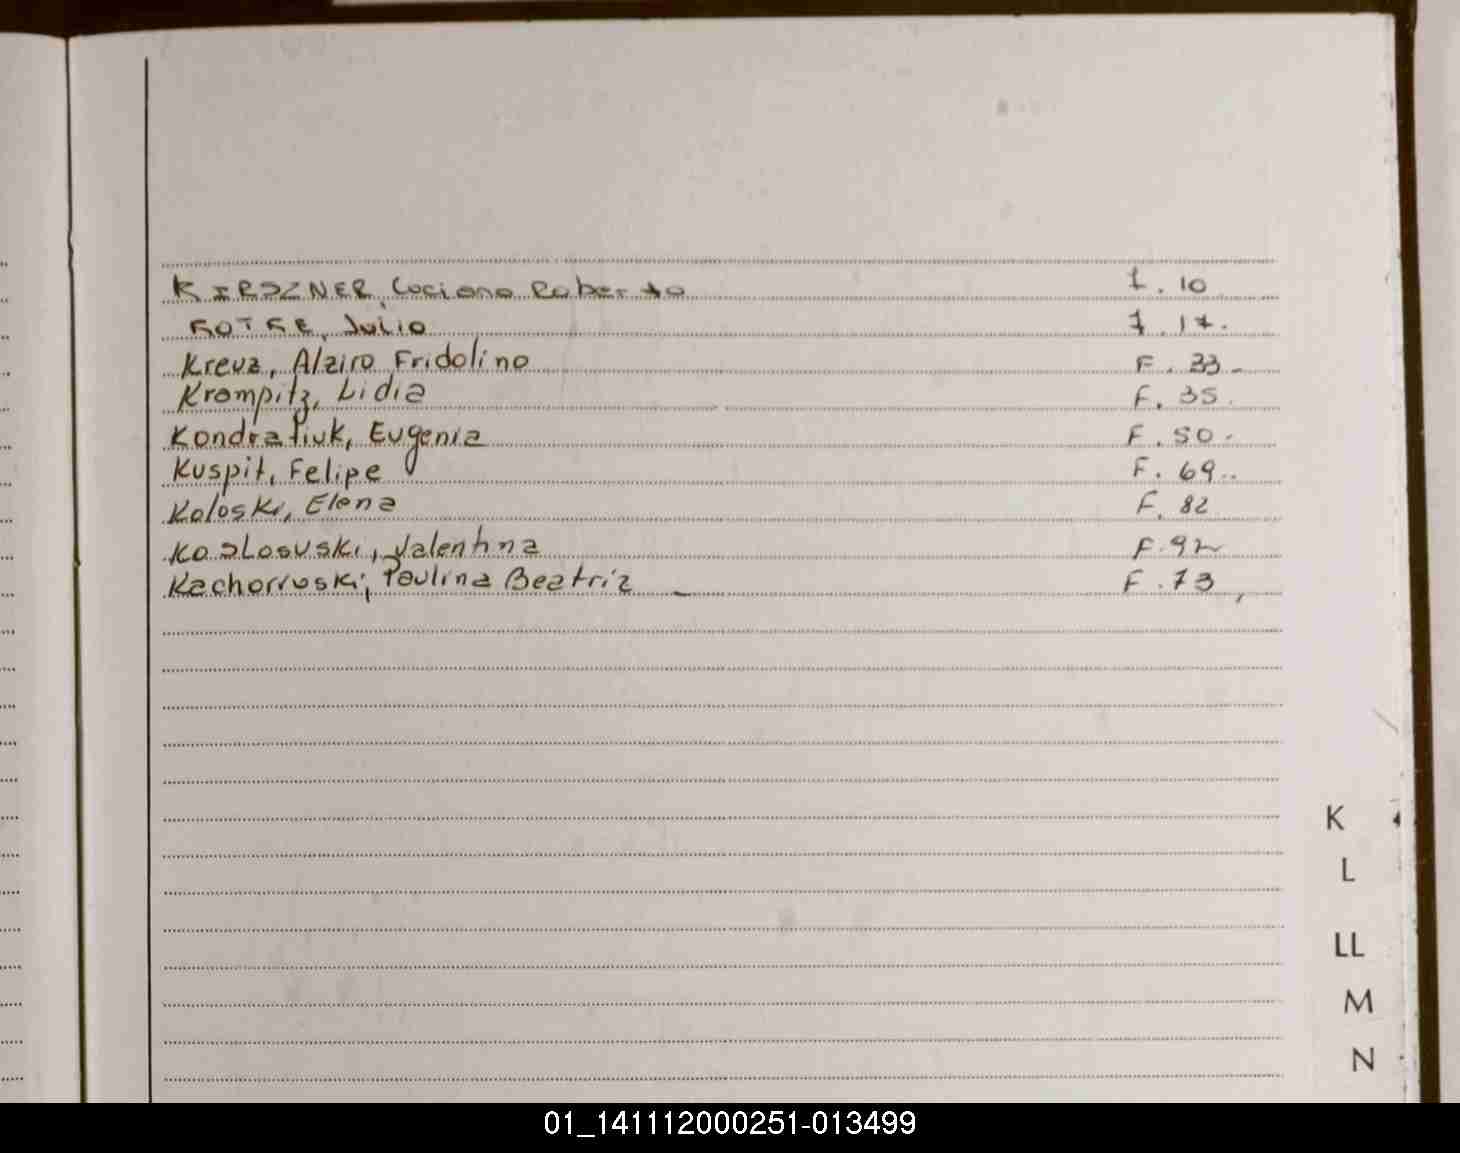 KIRSZNER, Luciano Roberto f. 10
KOTKE, Julio f. 17.
Kreuz, Alziro Fridolino F. 33.
Krompitz, Lidia F. 35.
Kondratiuk, Eugenia F. 50.
Kuspit, Felipe F. 69..
Koloski, Elena F. 82
Kozlosuski, Valentina F. 92
Kachorruski, Paulina Beatriz F. 73,
K
L
LL
M
N
01_141112000251-013499